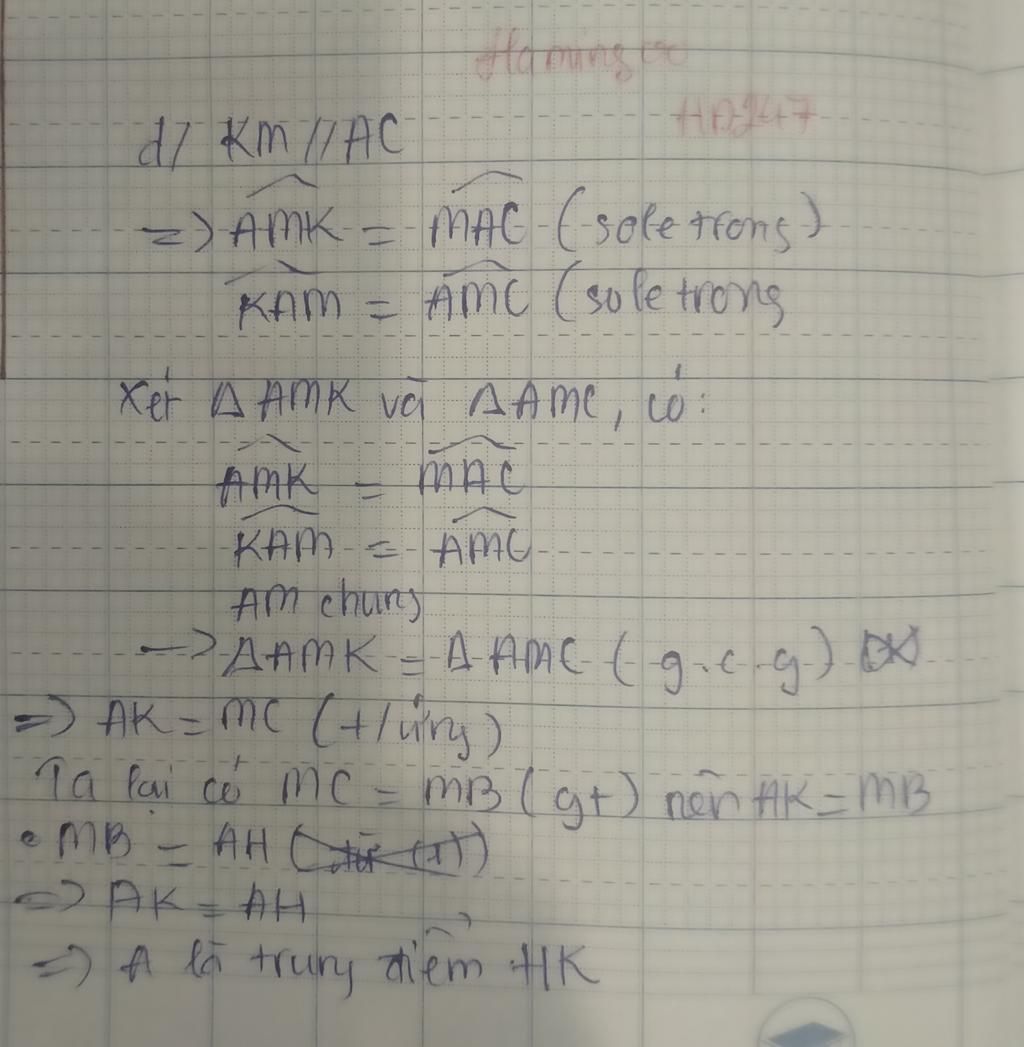 Haming
HD247
d/ KM//AC
=> AMK = MAC (sole trong)
KAM = AMC (sole trong
Xét Δ AMK và Δ AMC, có:
AMK = MAC
KAM = AMC
AM chung
-> Δ AMK = Δ AMC (g.c.g)
=> AK = MC (t/ứng)
Ta lại có MC = MB (gt) nên AK = MB
• MB = AH
=> AK = AH
=> A là trung điểm HK